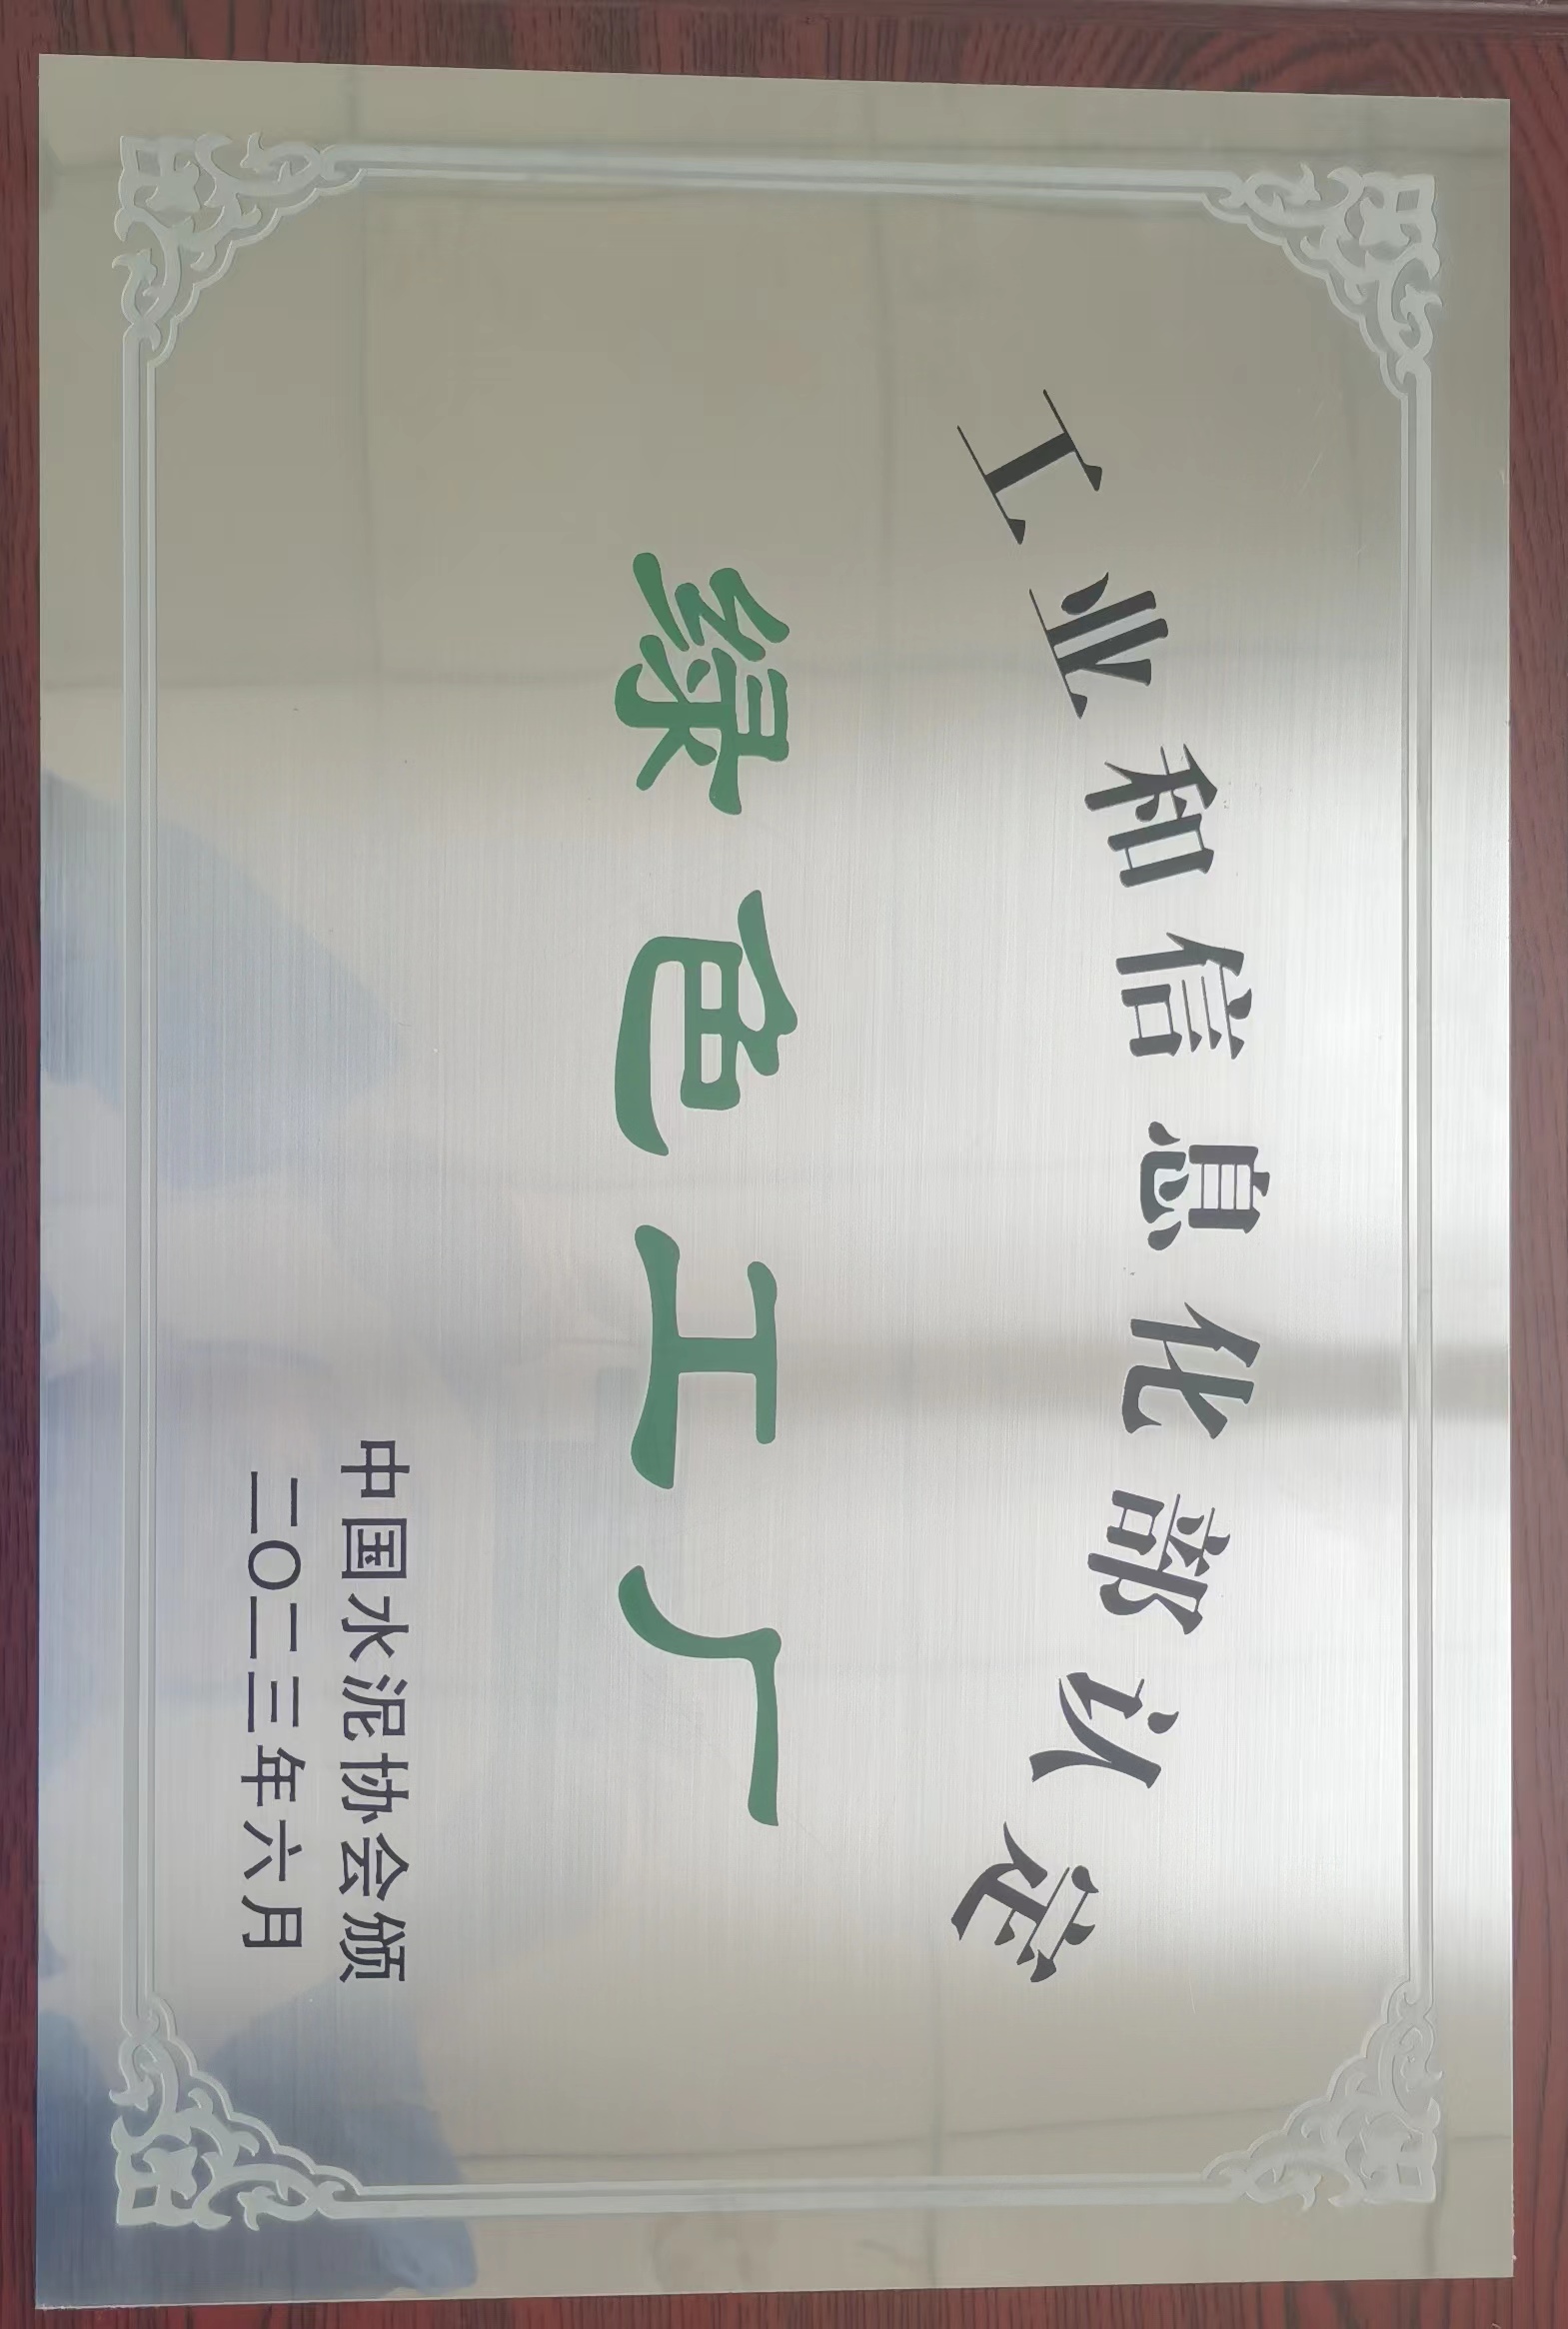 工业和信息化部认定
绿色工厂
中国水泥协会颁
二〇二三年六月